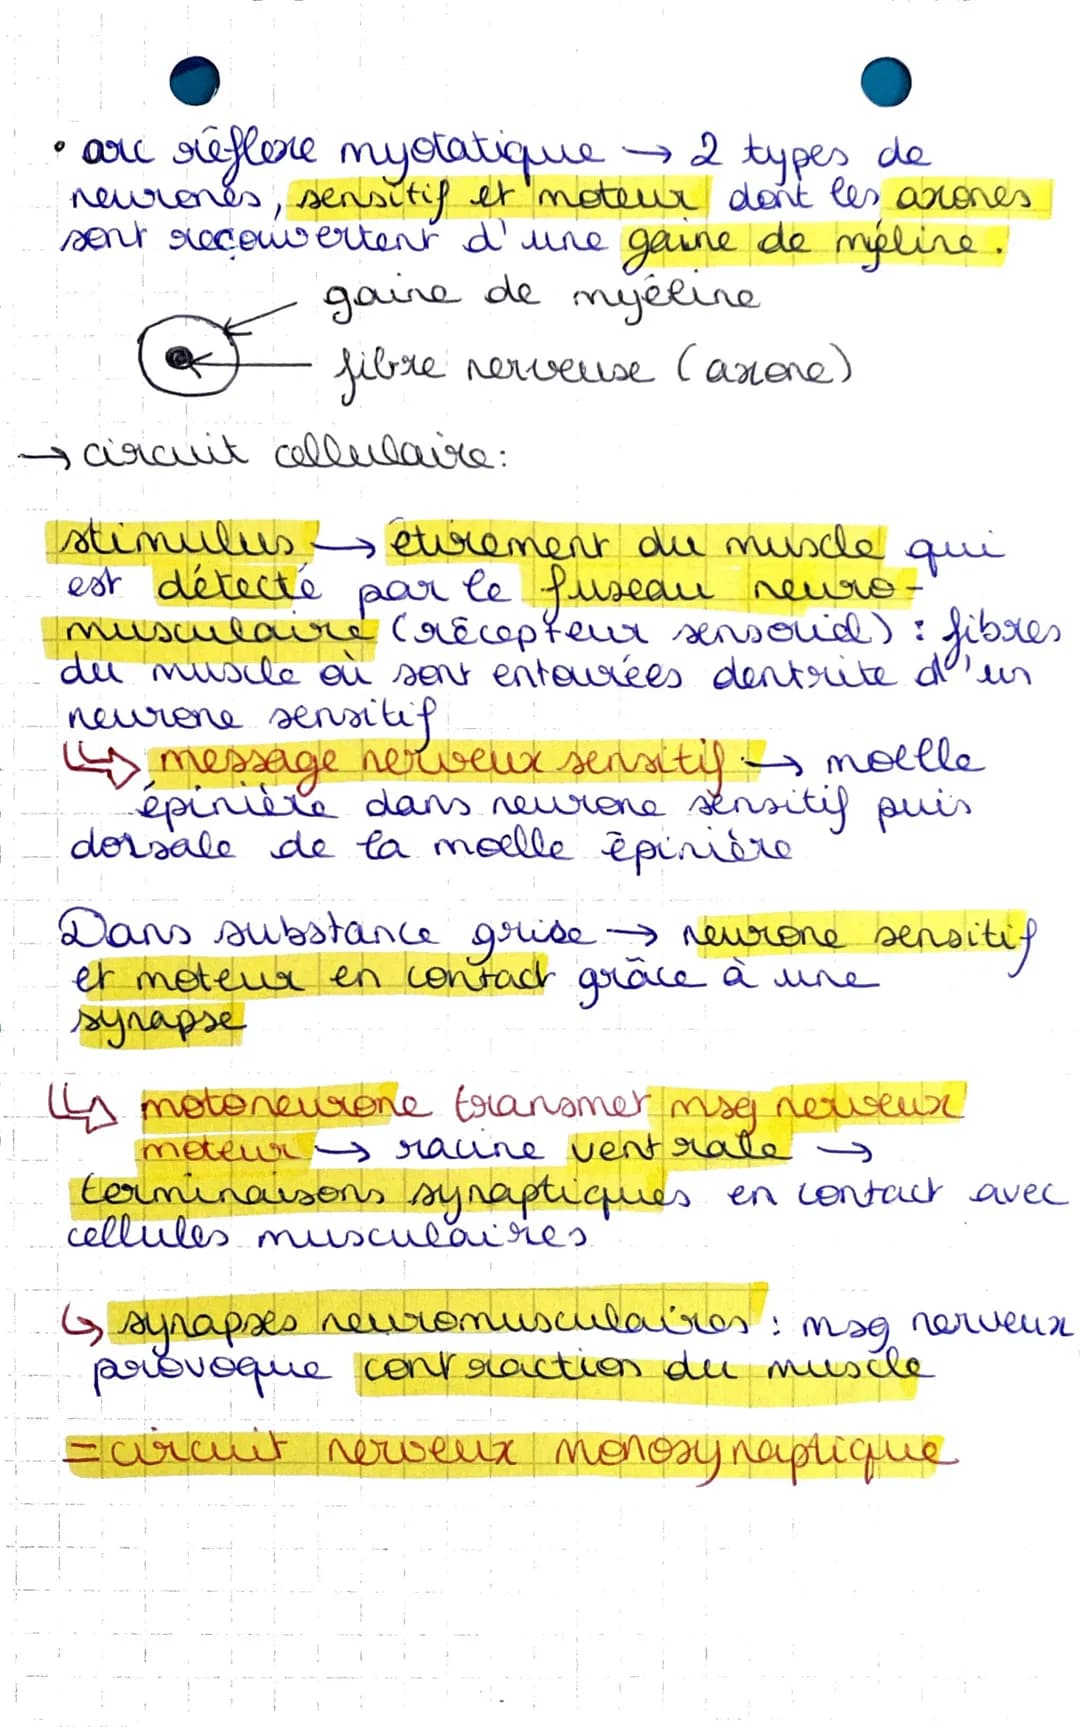 • arc réflexe myotatique → 2 types de
neurones, sensitif et moteur dont les axones
sont reçouvertent d'une gaine de méline.
gaine de myéline
fibre nerveuse (axone)
→ circuit cellulaire:
stimulus → étirement du muscle qui
est détecté par le fuseau neuro-
musculaire (récepteur sensoriel) : fibres
du muscle où sont entourées dentrite d'un
neurone sensitif
↳ message nerveux sensitif → moelle
épinière dans neurone sensitif puis
dorsale de la moelle épinière
Dans substance grise → neurone sensitif
et moteur en contact grâce à une
synapse
↳ motoneurone transmet msg nerveux
moteur → racine ventrale →
terminaisons synaptiques en contact avec
cellules musculaires
↳ synapses neuromusculaires : msg nerveux
provoque contraction du muscle
= circuit nerveux monosynaptique